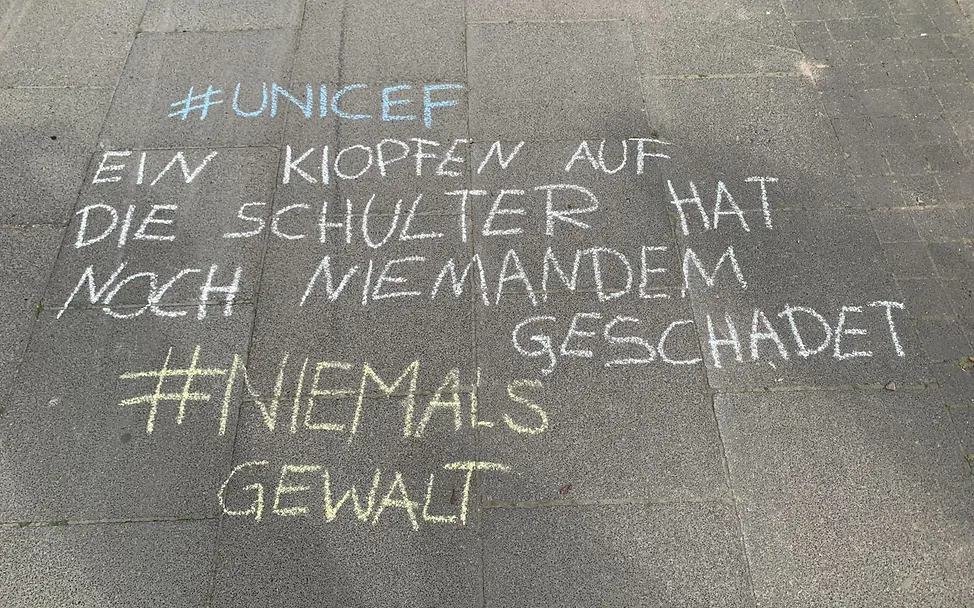 #UNICEF
EIN KLOPFEN AUF
DIE SCHULTER HAT
NOCH NIEMANDEM
GESCHADET
#NIEMALS
GEWALT